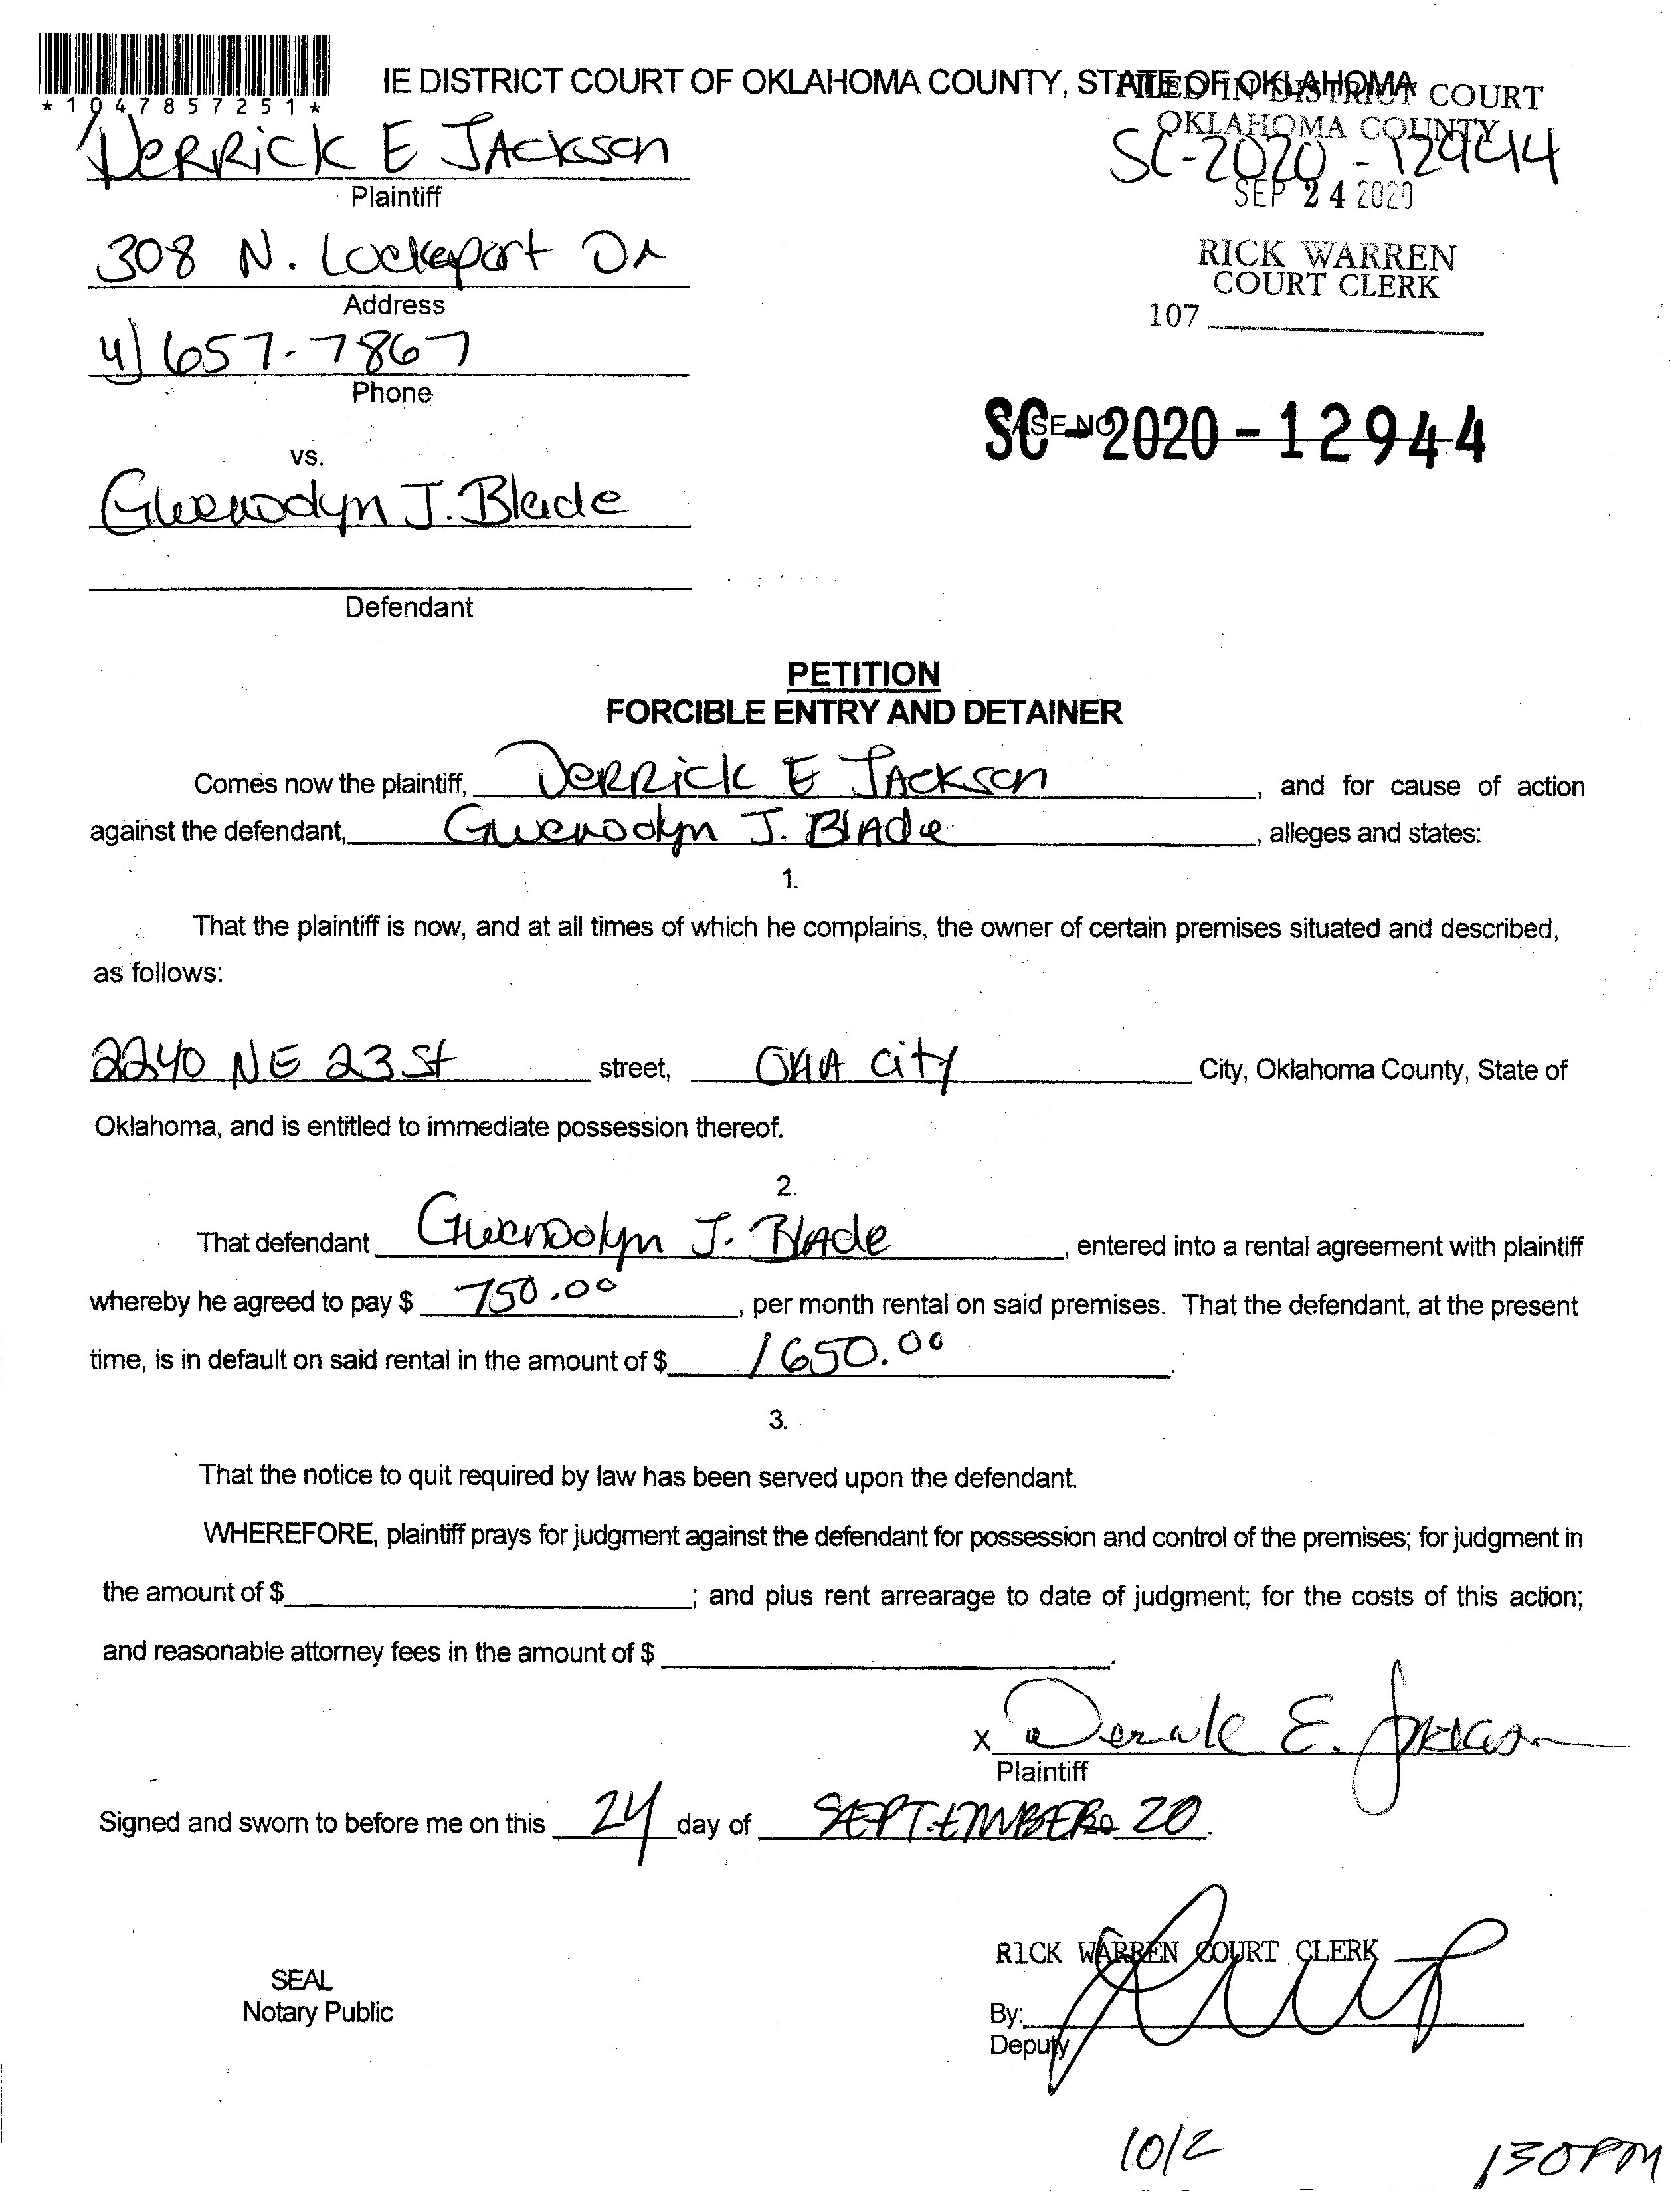 *1047857251*
IE DISTRICT COURT OF OKLAHOMA COUNTY, STATE OF OKLAHOMA
FILED IN DISTRICT COURT
OKLAHOMA COUNTY
DERRICK E JACKSON
SC-2020-12944
Plaintiff
SEP 24 2020
308 N. Lockeport Dr
RICK WARREN
COURT CLERK
Address
107
4) 657-7867
Phone
CASE NO
SC-2020-12944
vs.
Gwenodlyn J. Blade
Defendant
PETITION
FORCIBLE ENTRY AND DETAINER
Comes now the plaintiff, DERRICK E JACKSON, and for cause of action
against the defendant, Gwenodlyn J. BlAde, alleges and states:
1.
That the plaintiff is now, and at all times of which he complains, the owner of certain premises situated and described,
as follows:
2240 NE 23 St street, OKlA City City, Oklahoma County, State of
Oklahoma, and is entitled to immediate possession thereof.
2.
That defendant Gwendolyn J. BlAde, entered into a rental agreement with plaintiff
whereby he agreed to pay $ 750.00, per month rental on said premises. That the defendant, at the present
time, is in default on said rental in the amount of $ 1650.00.
3.
That the notice to quit required by law has been served upon the defendant.
WHEREFORE, plaintiff prays for judgment against the defendant for possession and control of the premises; for judgment in
the amount of $ ; and plus rent arrearage to date of judgment; for the costs of this action;
and reasonable attorney fees in the amount of $ .
x Derrick E. Jackson
Plaintiff
Signed and sworn to before me on this 24 day of SEPTEMBER 20 20.
RICK WARREN COURT CLERK
SEAL
Notary Public
By:
Deputy
10/2 130PM